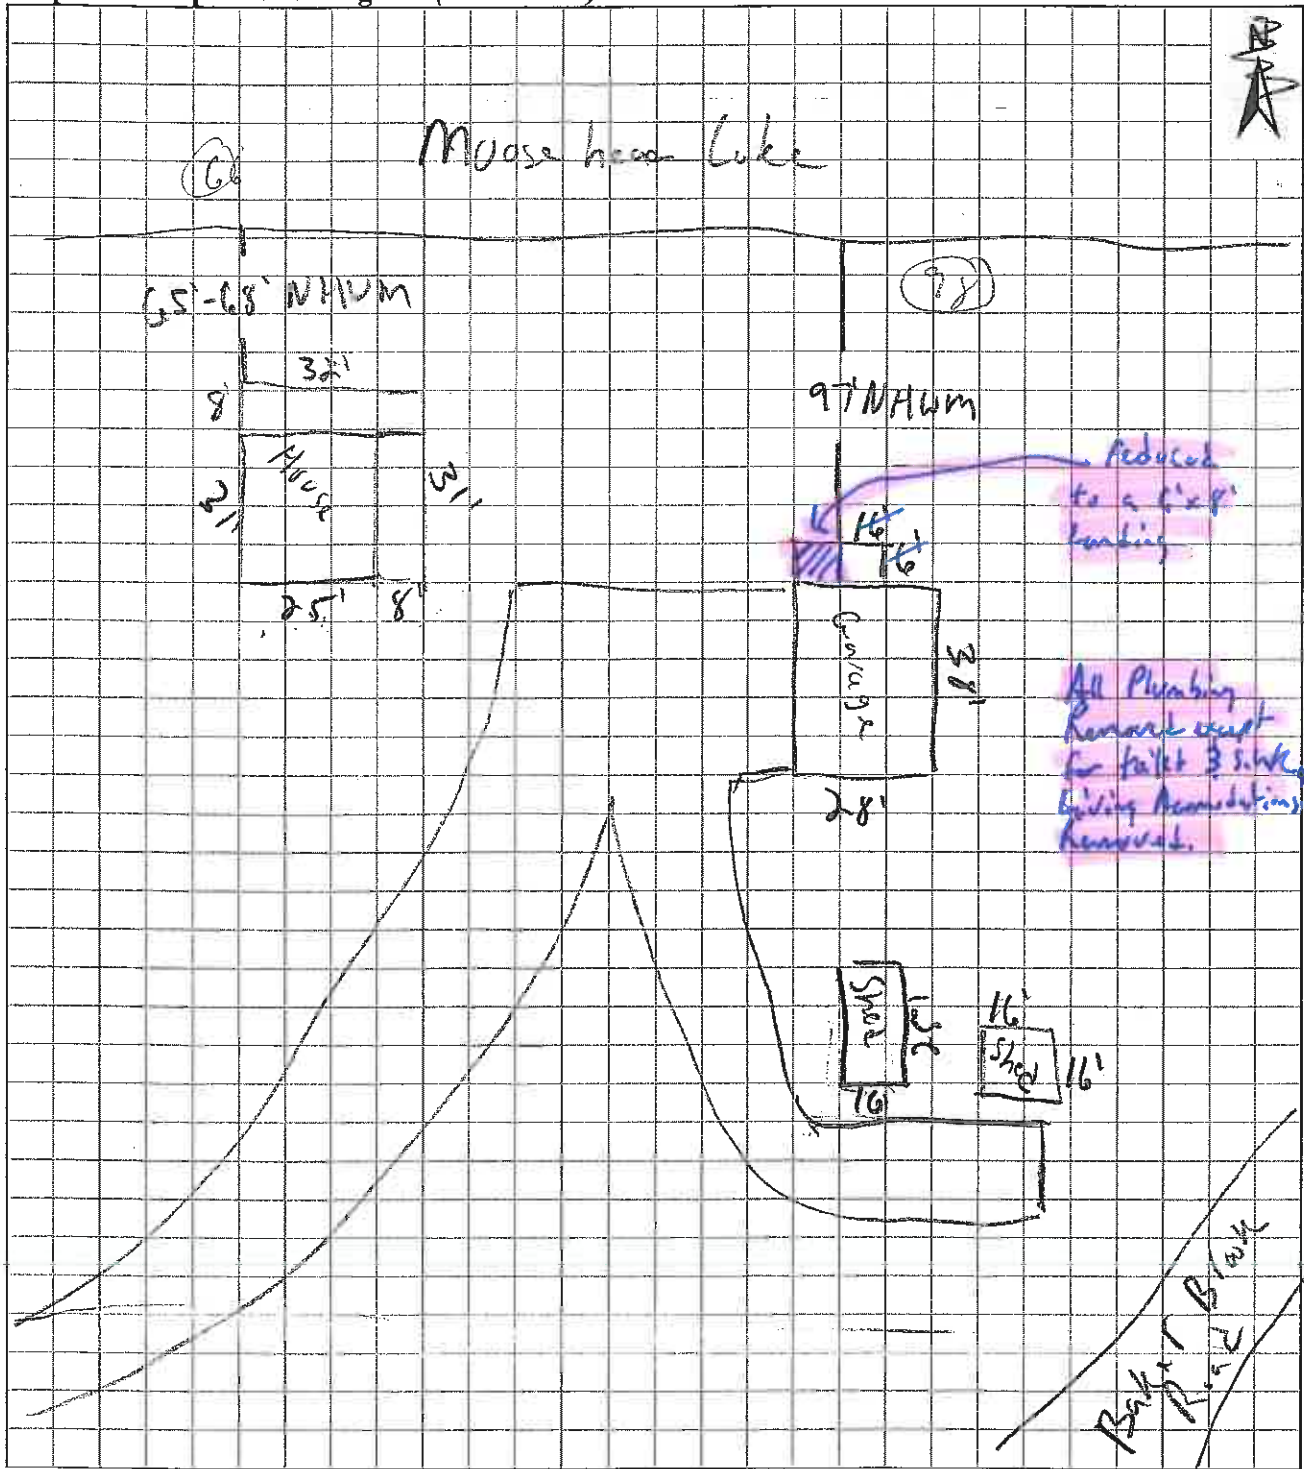 N
Moose head Lake
66
65'-68' NHWM
98
32'
8'
97' NHWM
House
31'
31'
Reduced
to a 6'x8'
landing
16'
16'
25'
8'
Garage
38'
28'
All Plumbing
Removed except
for toilet 3 sinks,
Living Acomodations
Removed.
Shed
16'
16'
Shed
16'
Baker Brook
Road